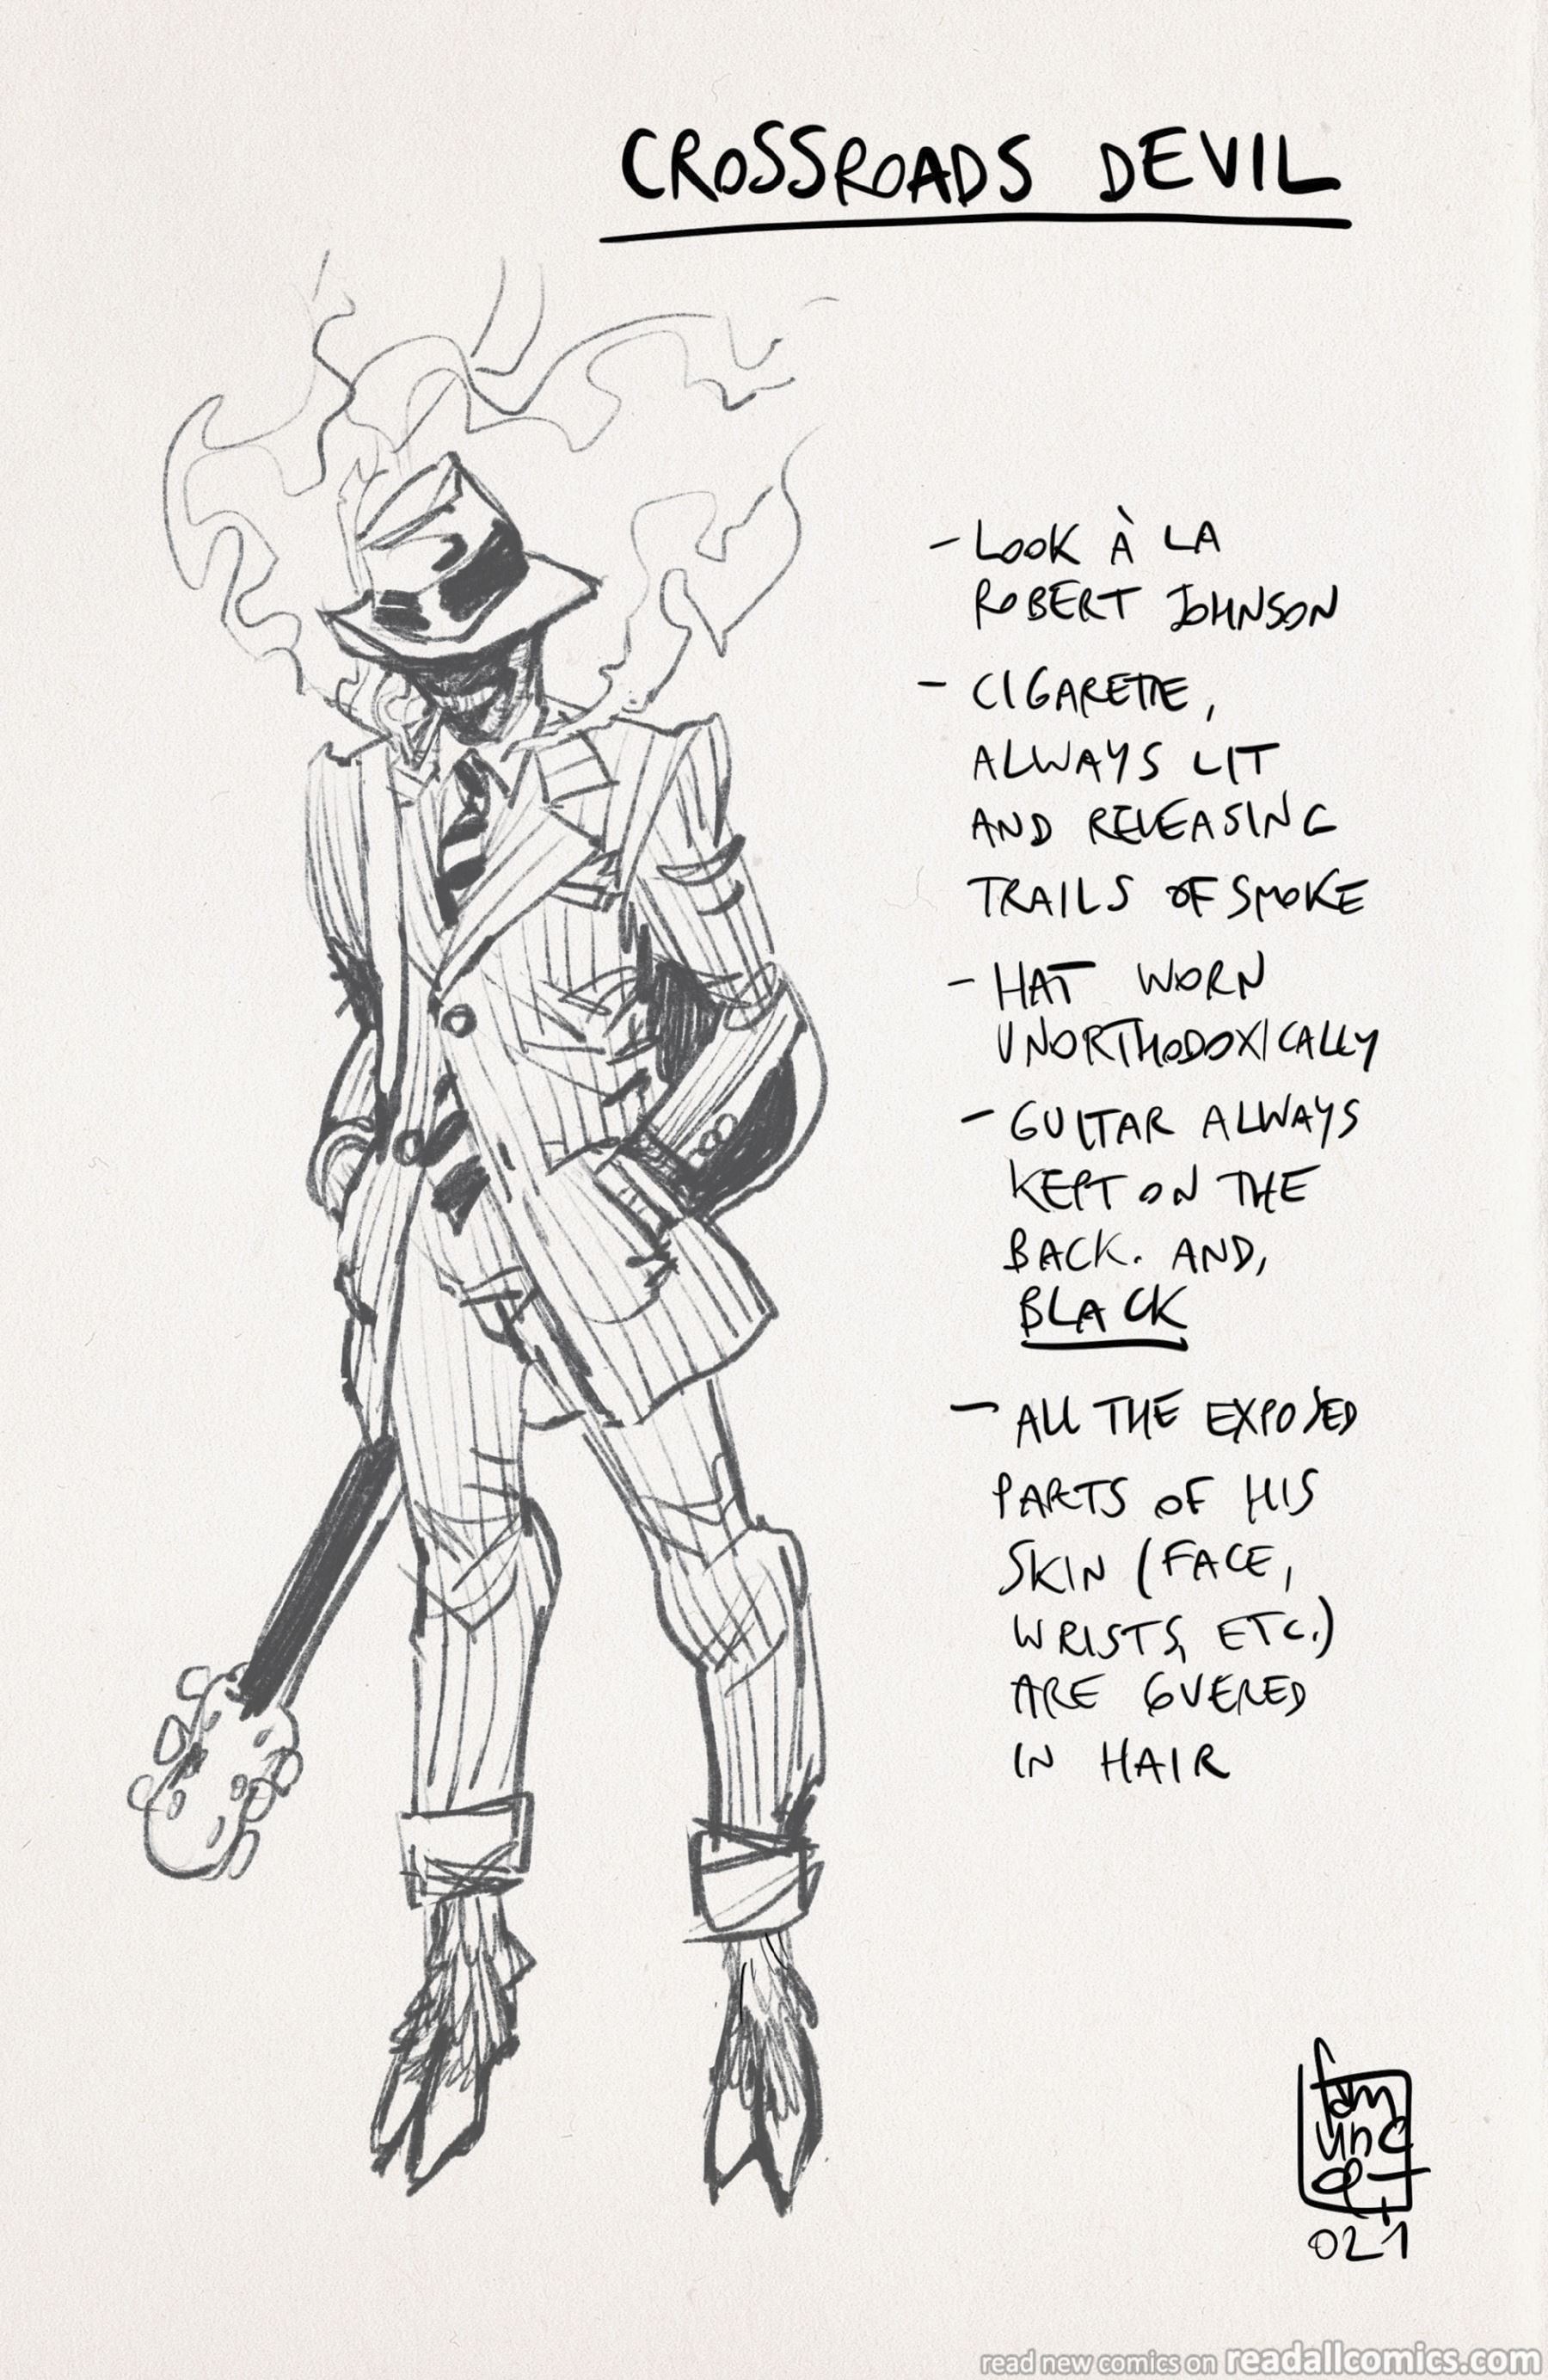 CROSSROADS DEVIL
- LOOK À LA
ROBERT JOHNSON
- CIGARETTE,
ALWAYS LIT
AND RELEASING
TRAILS OF SMOKE
- HAT WORN
UNORTHODOXICALLY
- GUITAR ALWAYS
KEPT ON THE
BACK. AND,
BLACK
- ALL THE EXPOSED
PARTS OF HIS
SKIN (FACE,
WRISTS, ETC.)
ARE COVERED
IN HAIR
021
read new comics on readallcomics.com